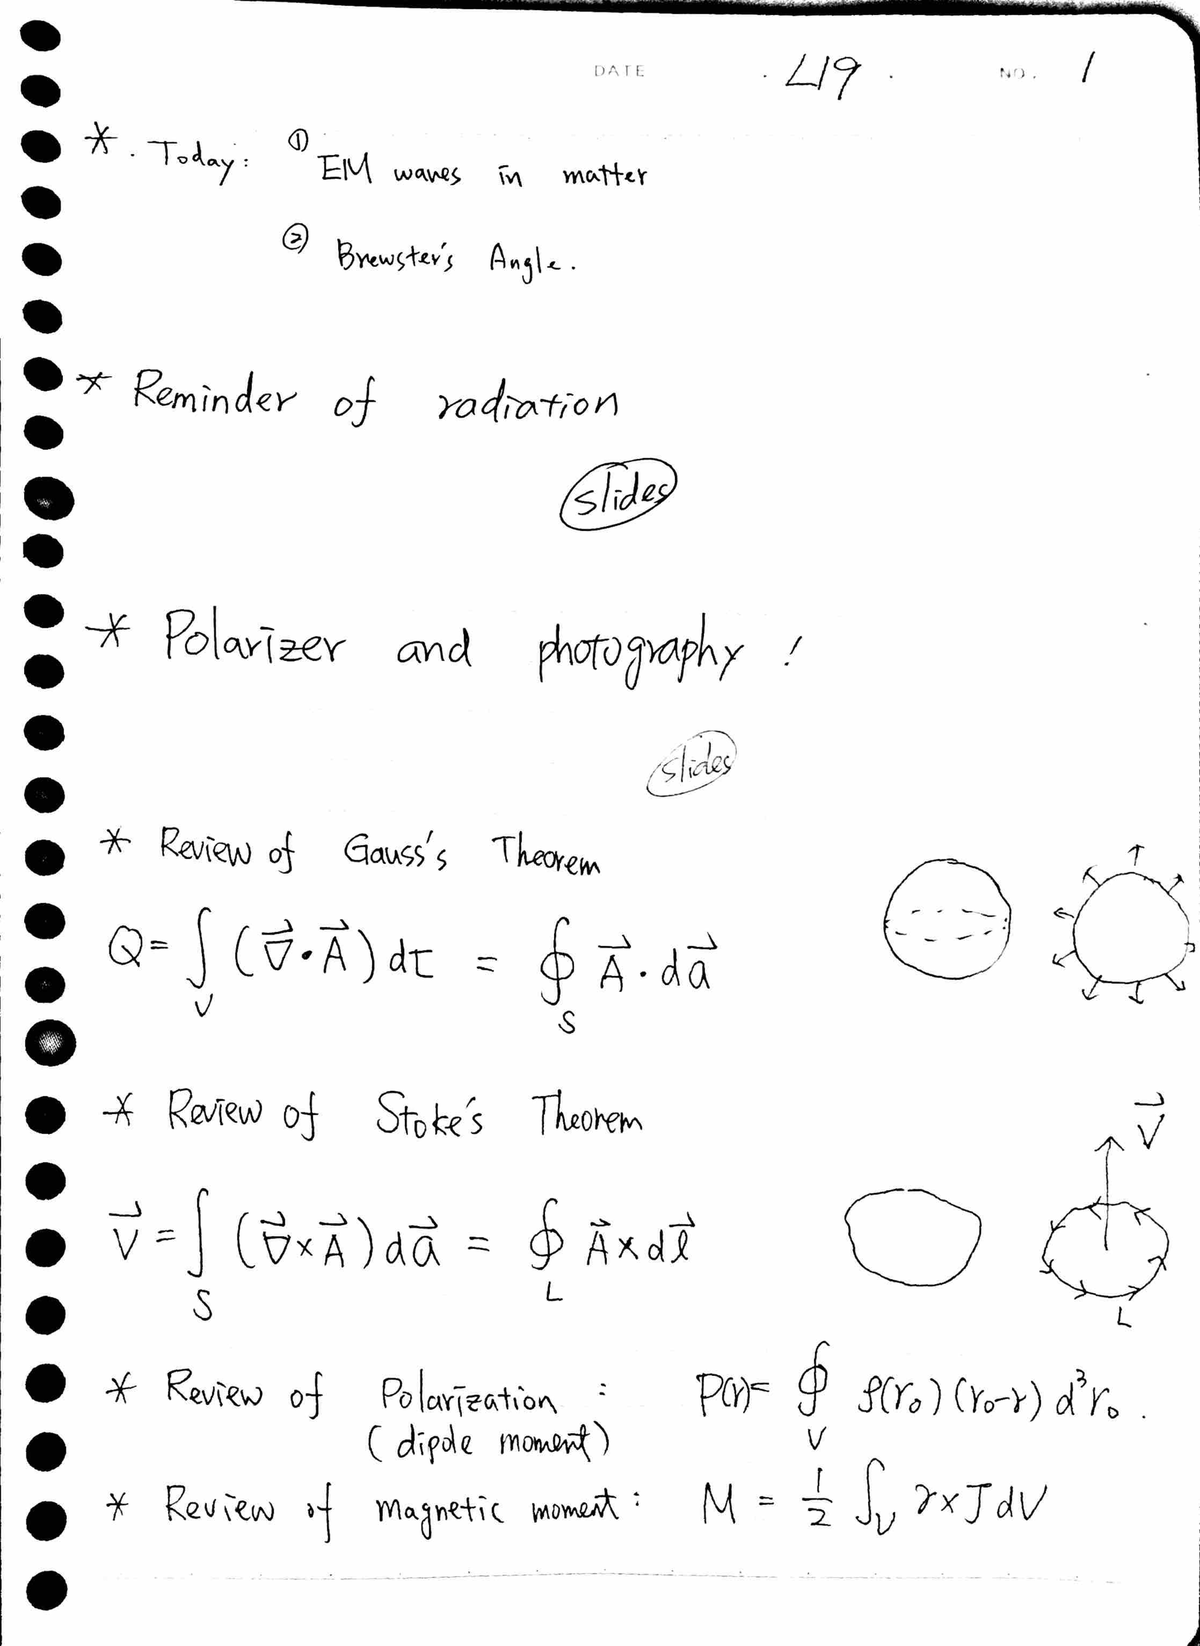 DATE . L19 . NO. 1
* . Today: ① EM waves in matter
② Brewster's Angle.
* Reminder of radiation
slides
* Polarizer and photography !
slides
* Review of Gauss's Theorem
Q = ∫_V (∇⃗ · A⃗) dτ = ∮_S A⃗ · da⃗
* Review of Stoke's Theorem
V⃗
V⃗ = ∫_S (∇⃗ × A⃗) da⃗ = ∮_L A⃗ × dl⃗
L
* Review of Polarization : P(r) = ∮_V ρ(r₀) (r₀-r) d³r₀ .
(dipole moment)
* Review of magnetic moment : M = 1/2 ∫_V r × J dV